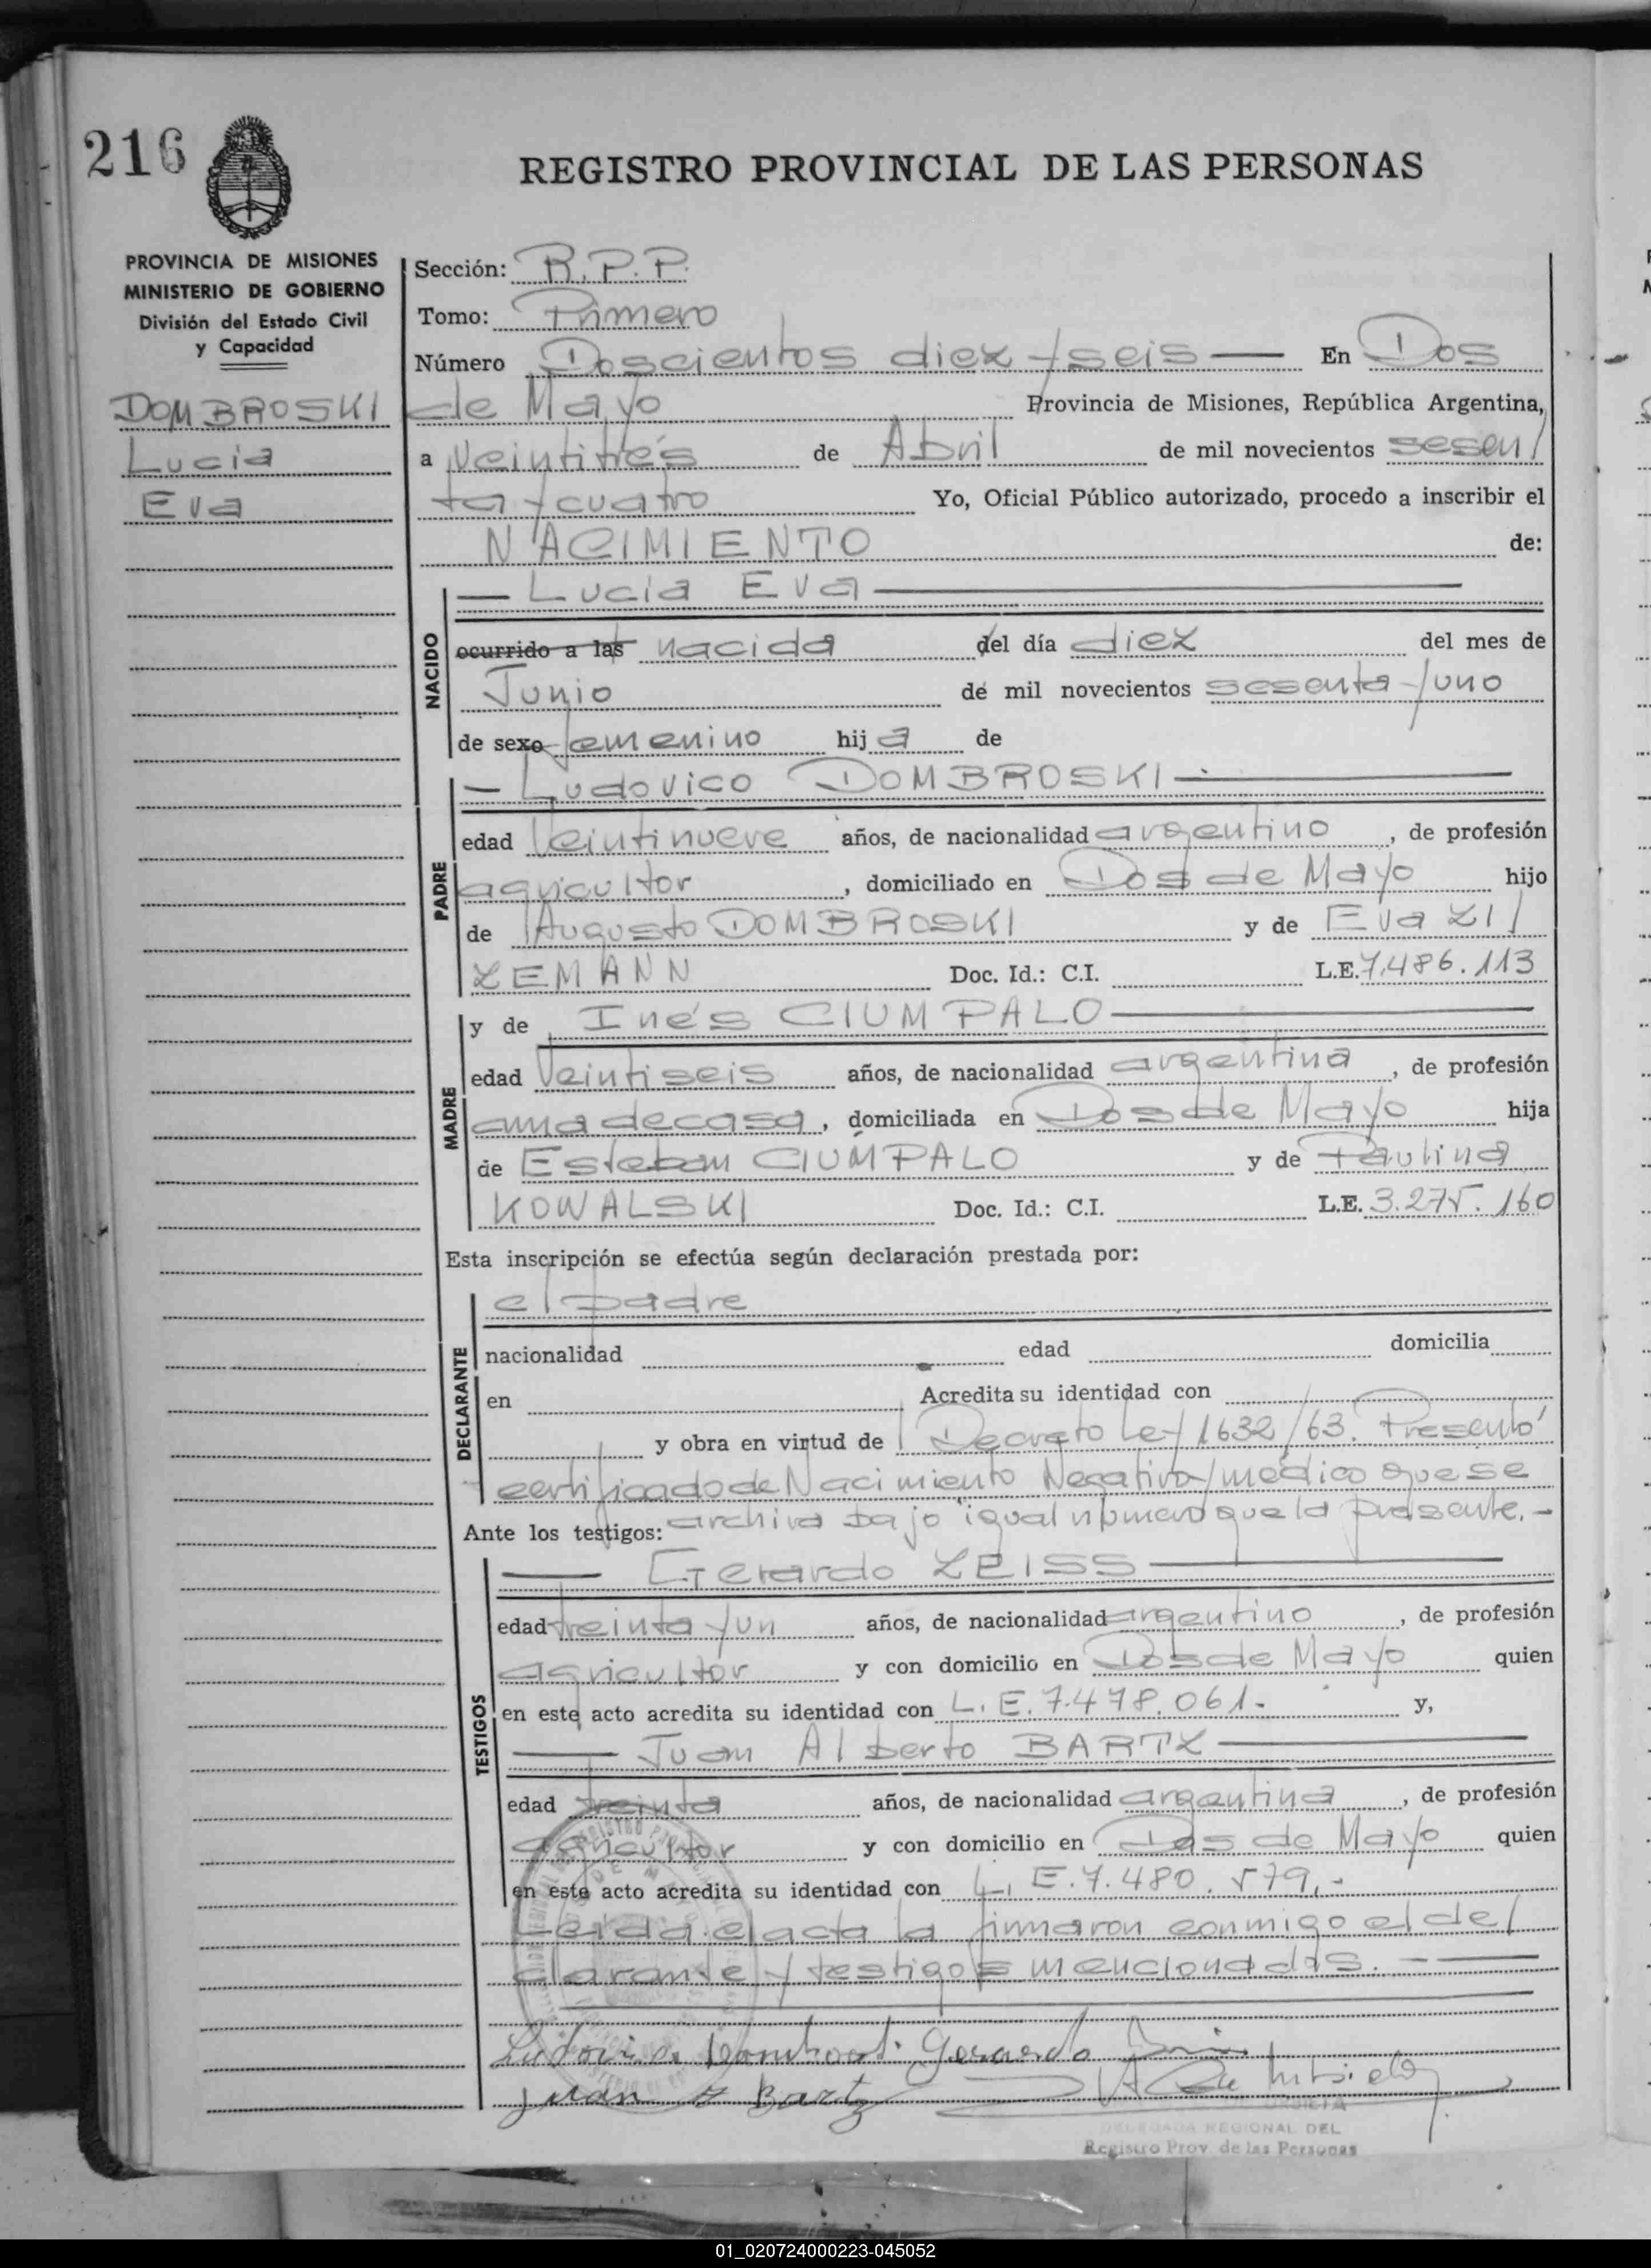 216
REGISTRO PROVINCIAL DE LAS PERSONAS
PROVINCIA DE MISIONES
MINISTERIO DE GOBIERNO
División del Estado Civil
y Capacidad
DOMBROSKI
Lucia
Eva
Sección: R.P.P.
Tomo: Primero
Número Doscientos diez y seis — En Dos
de Mayo Provincia de Misiones, República Argentina,
a veintitrés de Abril de mil novecientos sesen/
ta y cuatro Yo, Oficial Público autorizado, procedo a inscribir el
NACIMIENTO de:
— Lucia Eva —
NACIDO
ocurrido a las nacida del día diez del mes de
Junio de mil novecientos sesenta y uno
de sexo femenino hija de
— Ludovico DOMBROSKI —
PADRE
edad Veintinueve años, de nacionalidad argentino, de profesión
agricultor, domiciliado en Dos de Mayo hijo
de Augusto DOMBROSKI y de Eva ZI/
ZEMANN Doc. Id.: C.I. L.E. 7.486.113
y de Inés CIUMPALO —
MADRE
edad Veintiseis años, de nacionalidad argentina, de profesión
ama de casa, domiciliada en Dos de Mayo hija
de Esteban CIUMPALO y de Paulina
KOWALSKI Doc. Id.: C.I. L.E. 3.275.160
Esta inscripción se efectúa según declaración prestada por:
el padre
DECLARANTE
nacionalidad edad domicilia
en Acredita su identidad con
y obra en virtud de Decreto Ley 1632/63. Presentó
certificado de Nacimiento Negativo y médico que se
Ante los testigos: archiva bajo igual número que la presente.-
— Gerardo ZEISS —
TESTIGOS
edad treinta y un años, de nacionalidad argentino, de profesión
agricultor y con domicilio en Dos de Mayo quien
en este acto acredita su identidad con L.E. 7.478.061.- y,
— Juan Alberto BARTZ —
edad treinta años, de nacionalidad argentina, de profesión
agricultor y con domicilio en Dos de Mayo quien
en este acto acredita su identidad con L.E. 7.480.579.-
Leida el acta la firmaron conmigo el de/
clarante y testigos mencionados. —
Gerardo
Juan A Bartz
DELEGADA REGIONAL DEL
Registro Prov. de las Personas
01_020724000223-045052